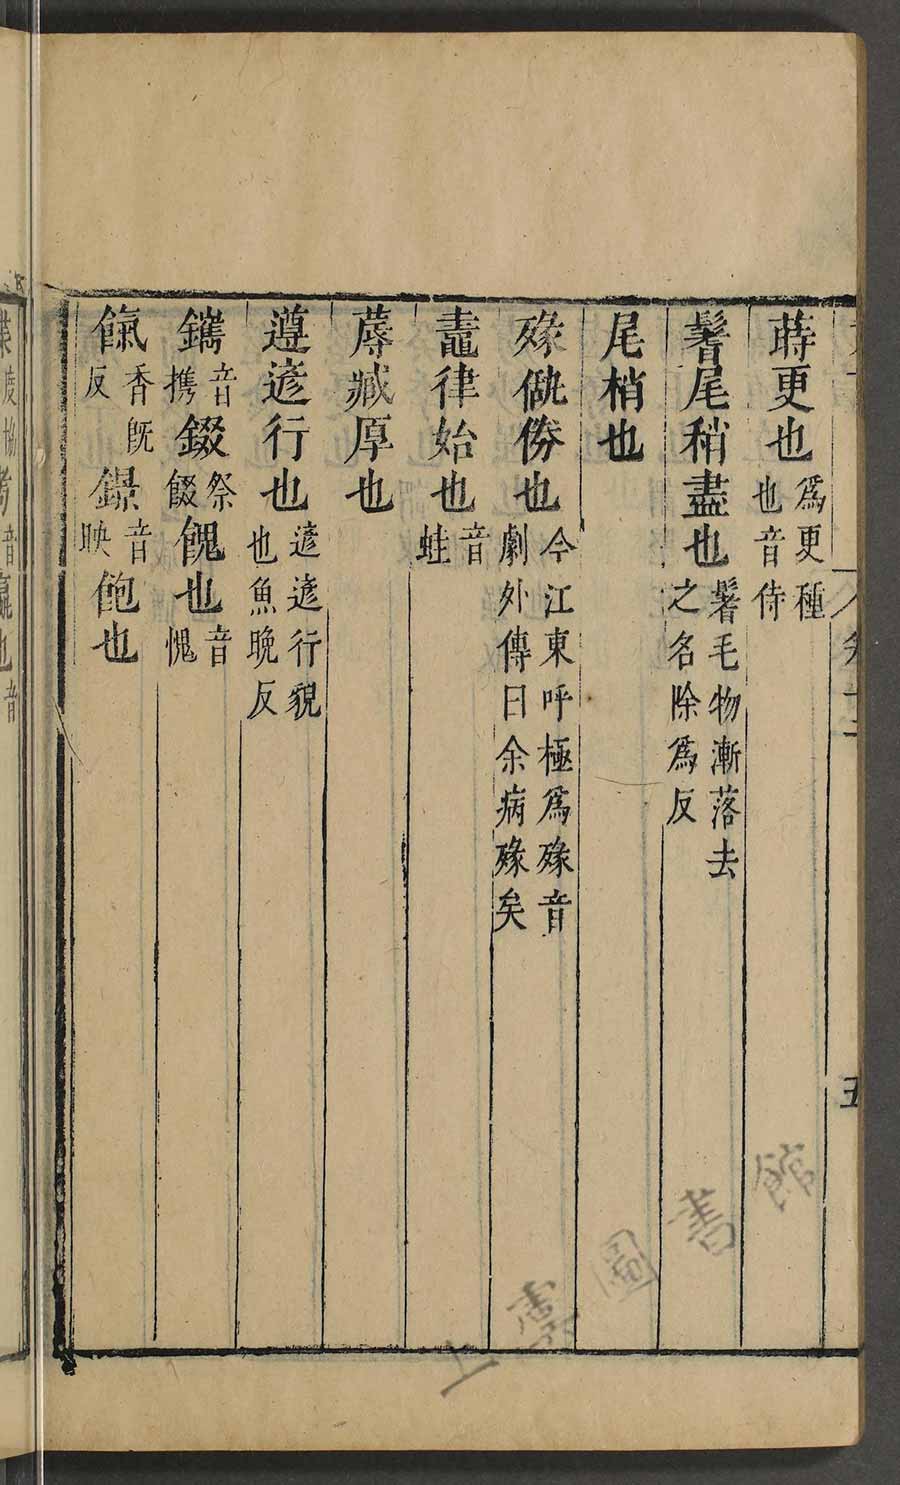 蒔更也為更種也音侍
鬌尾稍盡也鬌毛物漸落去之名除為反
尾梢也
㱡㑌㑩也今江東呼極為㱡音劇外傳曰余病㱡矣
鼃律始也音蛙
蓐臧厚也
遵遾行也遾遾行貌也魚晚反
鑴音攜錣祭餟餽也音愧
餼香旣反鐛音映飽也
五
上虞圖書館